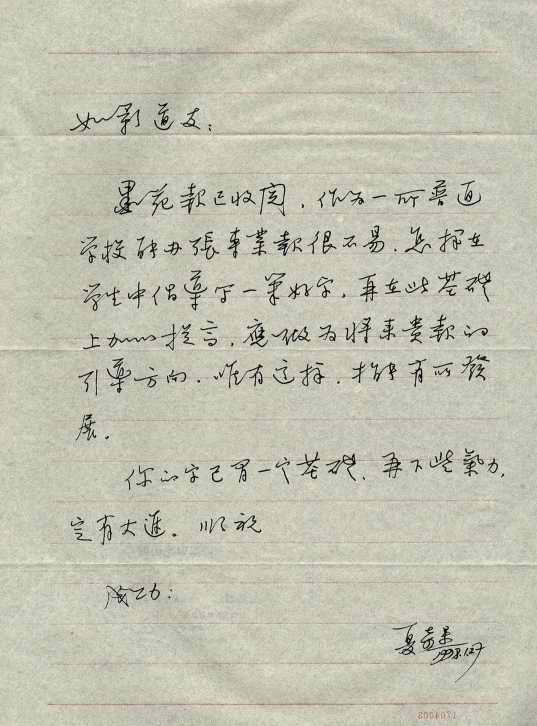 如影道友：
墨苑报已收阅，作为一所普通
学校能办張專業報很不易，怎样在
学生中倡導写一笔好字，再在此基礎
上加以提高，應做为将来贵報的
引導方向，唯有这样，才能有所發
展。
你的字已有一定基礎，再下些氣力，
定有大進。顺祝
成功：
夏
1998.12.7
1704003